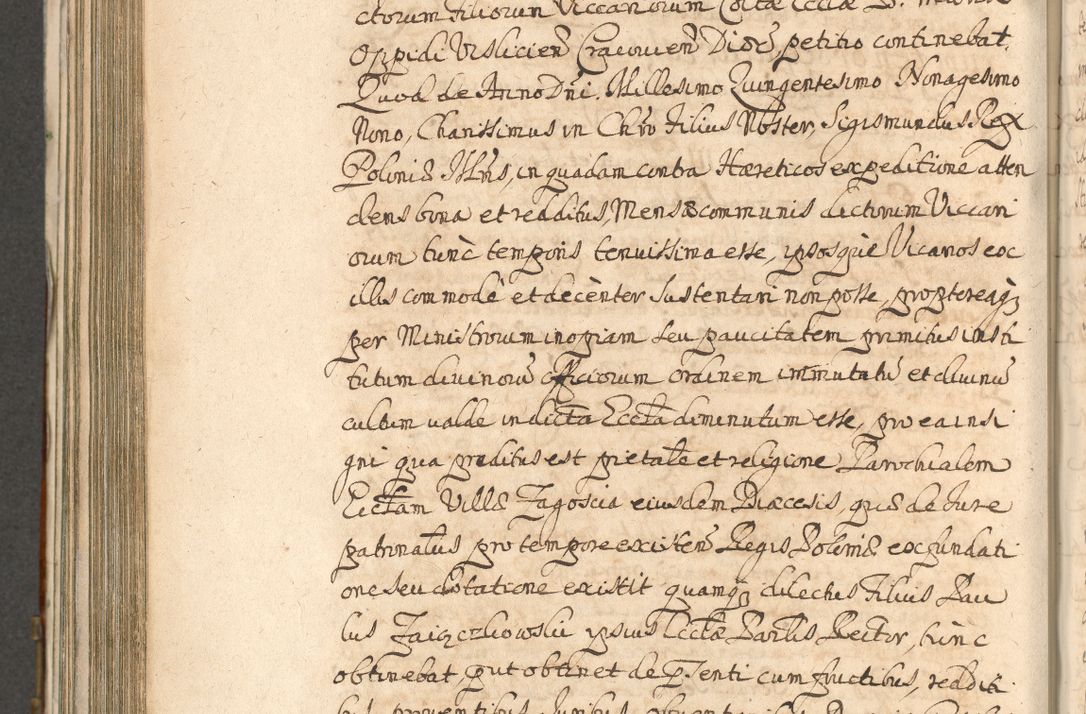 ctorum Filiorum Viccariorum Coltæ Eccłæ
Oppidi Visliciens̃ Cracovien̄ Dioc̃, petitio continebat,
Quod de Anno Dñi. Millesimo Quingentesimo Nonagesimo
Nono, Charissimus in Chr̃o Filius Noster, Sigismundus Rex
Poloniæ Illr̃is, in quadam contra Hæreticos expeditione atten
dens bona et redditus, Mensæ communis dictorum Viccari
orum tunc̀ temporis tenuissima esse, ipsosquè Vicarios ex
illis commodè et decènter sustentari non posse, proptereaq̀ꝫ
per Ministrorum inopiam seu paucitatem primitus insti
tutum divinorũ officiorum ordinem immutatũ et divinũ
cultum valde in dicta Eccła diminutum esse, pro ea insi
gni qua præditus est pietate et religione Parochialem
Eccłam Villæ Zagoscia eiusdem Diæcesis, quæ de Iure
patronatus pro tempore existen̄ Regis Poloniæ ex fundati
one seu dotatione existit quamqꝫ dilectus Filius Pau
lus Zaiączkowski ipsius Eccłæ Parłis Rector, tùnc
obtinebat, put obtinet de p̃senti cum fructibus, redditi
bus proventibus Iuribus